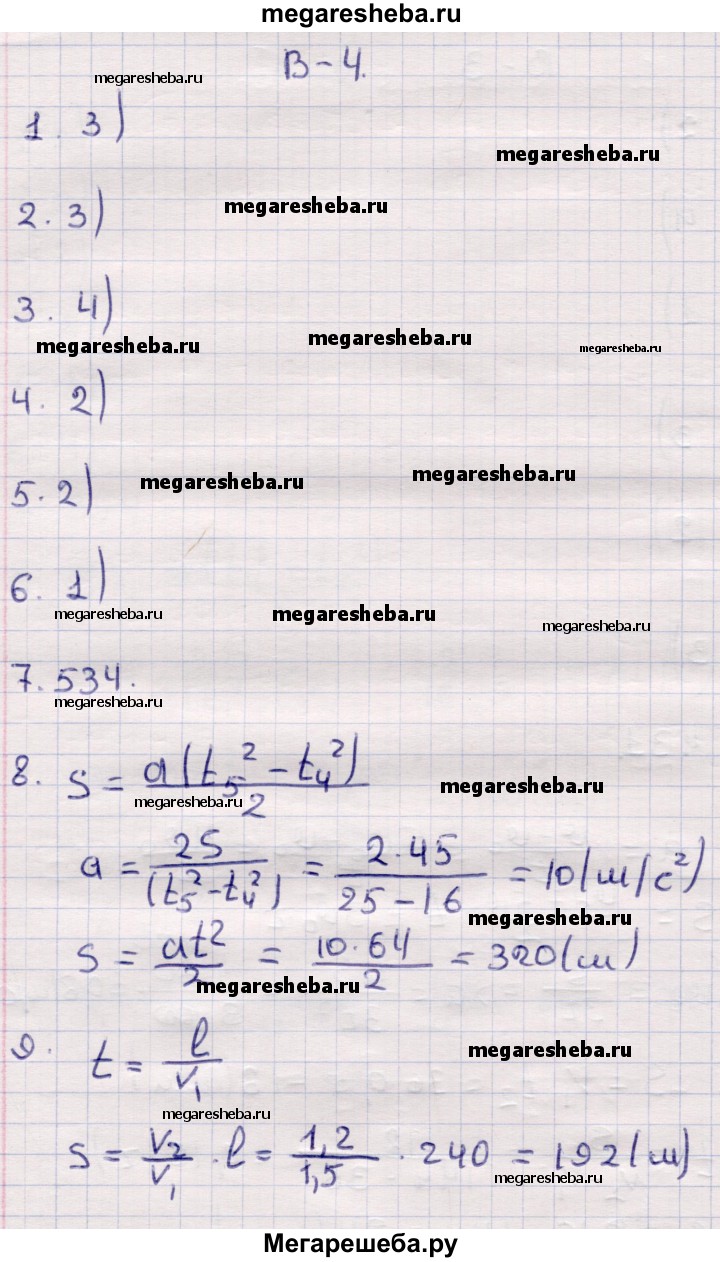 megaresheba.ru
В-4.
megaresheba.ru
1. 3)
megaresheba.ru
2. 3)
megaresheba.ru
3. 4)
megaresheba.ru
megaresheba.ru
megaresheba.ru
4. 2)
5. 2)
megaresheba.ru
megaresheba.ru
6. 1)
megaresheba.ru
megaresheba.ru
megaresheba.ru
7. 534.
megaresheba.ru
8. S = a(t₅² - t₄²) / 2
megaresheba.ru
megaresheba.ru
a = 2S / (t₅² - t₄²) = 2·45 / 25-16 = 10(м/с²)
megaresheba.ru
S = at² / 2 = 10·64 / 2 = 320(м)
megaresheba.ru
9. t = l / v₁
megaresheba.ru
megaresheba.ru
S = v₂ / v₁ · l = 1,2 / 1,5 · 240 = 192(м)
megaresheba.ru
Мегарешеба.ру